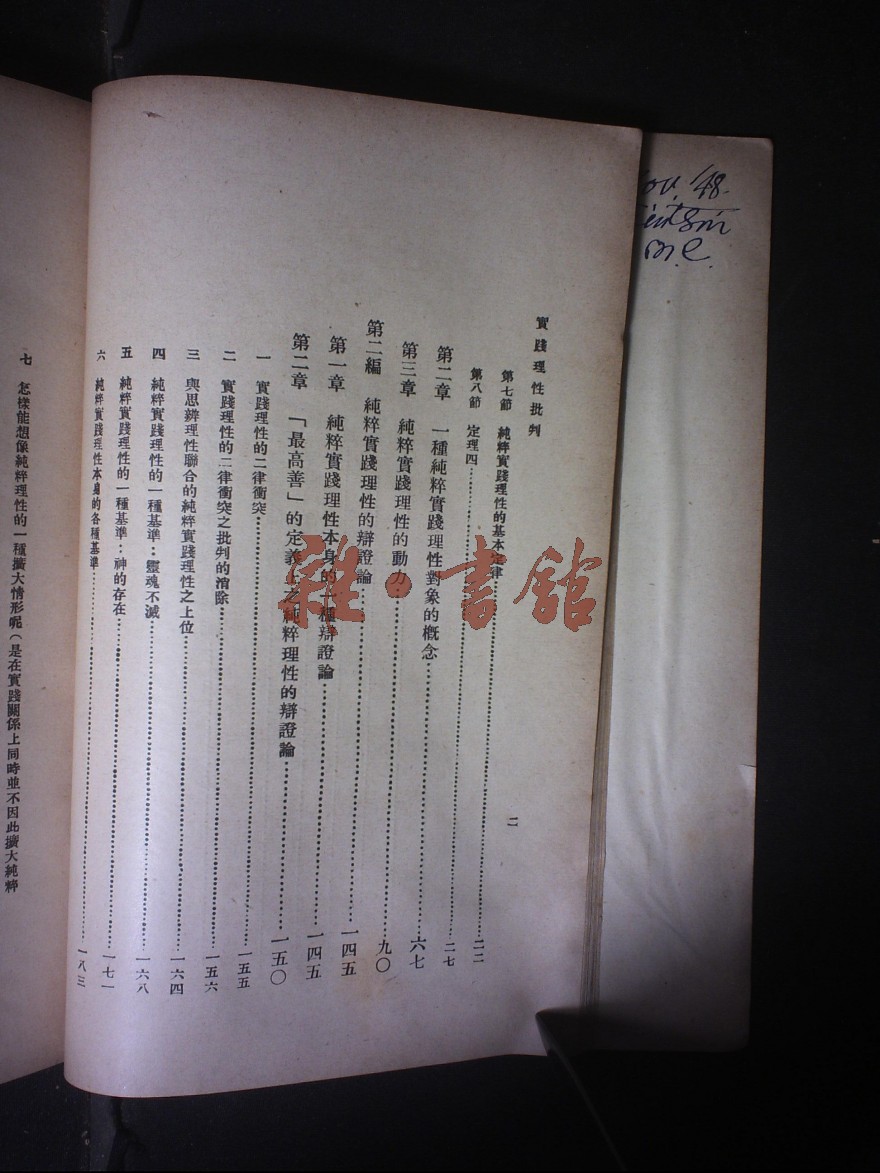 實踐理性批判
二
第七節 純粹實踐理性的基本定律……二二
第八節 定理四……二七
第二章 一種純粹實踐理性對象的概念……六七
第三章 純粹實踐理性的動力……九〇
第二編 純粹實踐理性的辯證論……一四五
第一章 純粹實踐理性本身的一種辯證論……一四五
第二章 「最高善」的定義上之純粹理性的辯證論……一五〇
一 實踐理性的二律衝突……一五五
二 實踐理性的二律衝突之批判的消除……一五六
三 與思辨理性聯合的純粹實踐理性之上位……一六四
四 純粹實踐理性的一種基準：靈魂不滅……一六八
五 純粹實踐理性的一種基準：神的存在……一七一
六 純粹實踐理性本身的各種基準……一八三
七 怎樣能想像純粹理性的一種擴大情形呢（是在實踐關係上同時並不因此擴大純粹
雜·書館
'48.